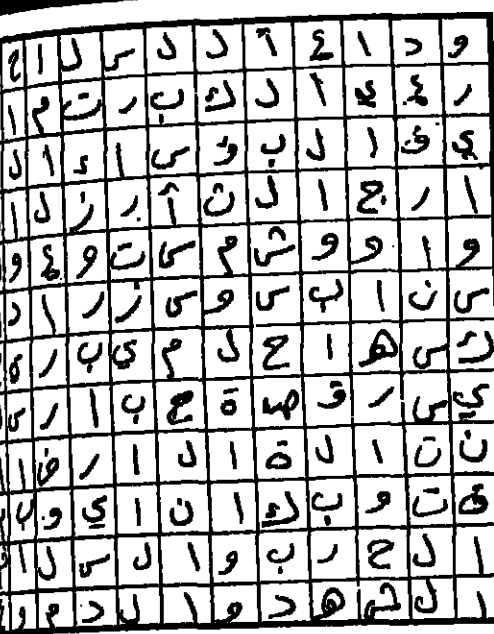 و د ا ع آ ل ل س ل ا ع
ر ع ي ا ل ك ب ر ت م ا
ي ف ا ل ب و س ا ء ا ل
ا ر ج ا ل ث أ ر ز ل ا
و ا و و ش م س ت و ع و
س ن ا ب س و س ز ر ا د
ك س ه ا ح ل م ي ب ر ه
ي س ر ق ص ة ح ب ا ر س
ن ت ا ل ة ا ل ا ر ض ا
ق ت و ب ك ا ن ا ي و ب
ا ل ح ر ب و ا ل س ل ا
ا ل ش ه د و ا ل د م و